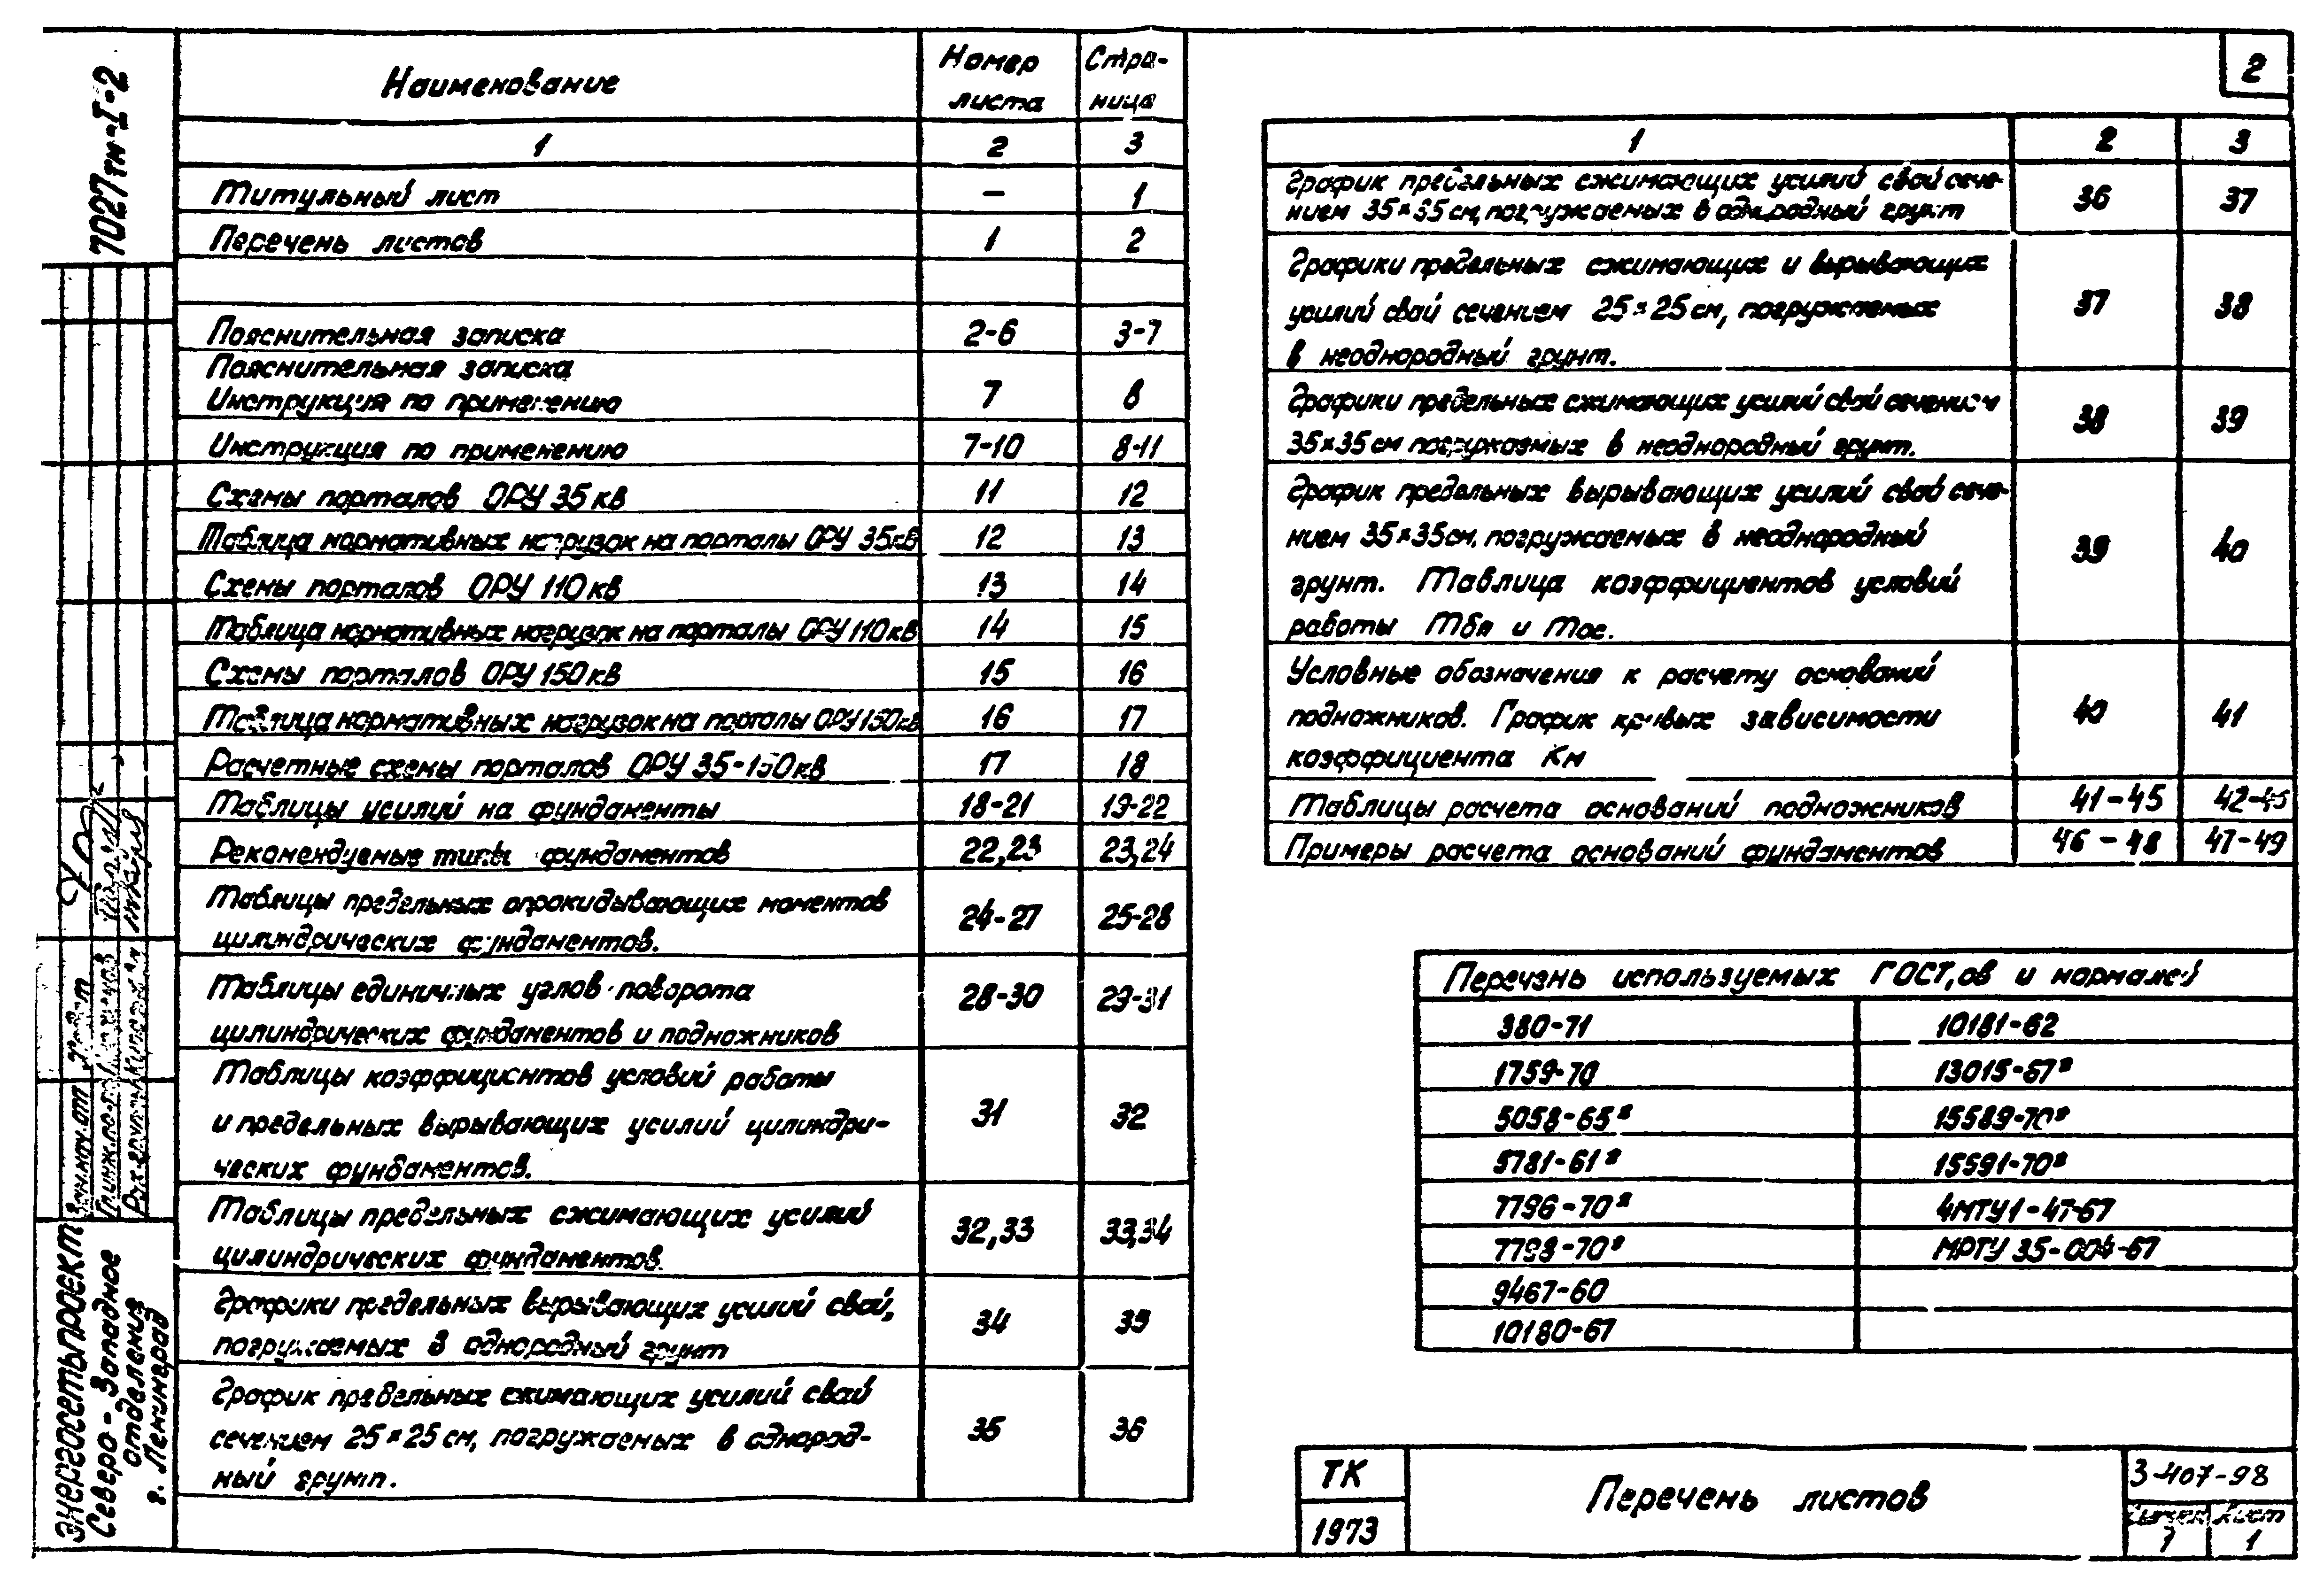 7027тм-I-2
Наименование
Номер листа
Стра-ница
1 2 3
Титульный лист — 1
Перечень листов 1 2
Пояснительная записка 2-6 3-7
Пояснительная записка
Инструкция по применению 7 8
Инструкция по применению 7-10 8-11
Схемы порталов ОРУ 35 кв 11 12
Таблица нормативных нагрузок на порталы ОРУ 35кв 12 13
Схемы порталов ОРУ 110 кв 13 14
Таблица нормативных нагрузок на порталы ОРУ 110 кв 14 15
Схемы порталов ОРУ 150 кв 15 16
Таблица нормативных нагрузок на порталы ОРУ 150кв 16 17
Расчетные схемы порталов ОРУ 35-150 кв 17 18
Таблицы усилий на фундаменты 18-21 19-22
Рекомендуемые типы фундаментов 22,23 23,24
Таблицы предельных опрокидывающих моментов
цилиндрических фундаментов. 24-27 25-28
Таблицы единичных углов поворота
цилиндрических фундаментов и подножников 28-30 29-31
Таблицы коэффициентов условий работы
и предельных вырывающих усилий цилиндри-
ческих фундаментов. 31 32
Таблицы предельных сжимающих усилий
цилиндрических фундаментов. 32,33 33,34
Графики предельных вырывающих усилий свай,
погружаемых в однородный грунт 34 35
График предельных сжимающих усилий свай
сечением 25×25 см, погружаемых в однород-
ный грунт. 35 36
2
1 2 3
График предельных сжимающих усилий свай сече-
нием 35×35 см, погружаемых в однородный грунт 36 37
Графики предельных сжимающих и вырывающих
усилий свай сечением 25×25 см, погружаемых
в неоднородный грунт. 37 38
Графики предельных сжимающих усилий свай сечением
35×35 см погружаемых в неоднородный грунт. 38 39
График предельных вырывающих усилий свай сече-
нием 35×35 см, погружаемых в неоднородный
грунт. Таблица коэффициентов условий
работы mбп и mос. 39 40
Условные обозначения к расчету оснований
подножников. График кривых зависимости
коэффициента Км 40 41
Таблицы расчета оснований подножников 41-45 42-46
Примеры расчета оснований фундаментов 46-48 47-49
Перечень используемых ГОСТ,ов и нормалей
380-71 10181-62
1759-70 13015-67*
5058-65* 15589-70*
5781-61* 15591-70*
7796-70* 4МТУ1-47-67
7798-70* МРТУ 35-004-67
9467-60
10180-67
Энергосетьпроект
Северо-Западное
отделение
г. Ленинград
Рук. группы
ТК
1973
Перечень листов
3-407-98
Выпуск 1
Лист 1